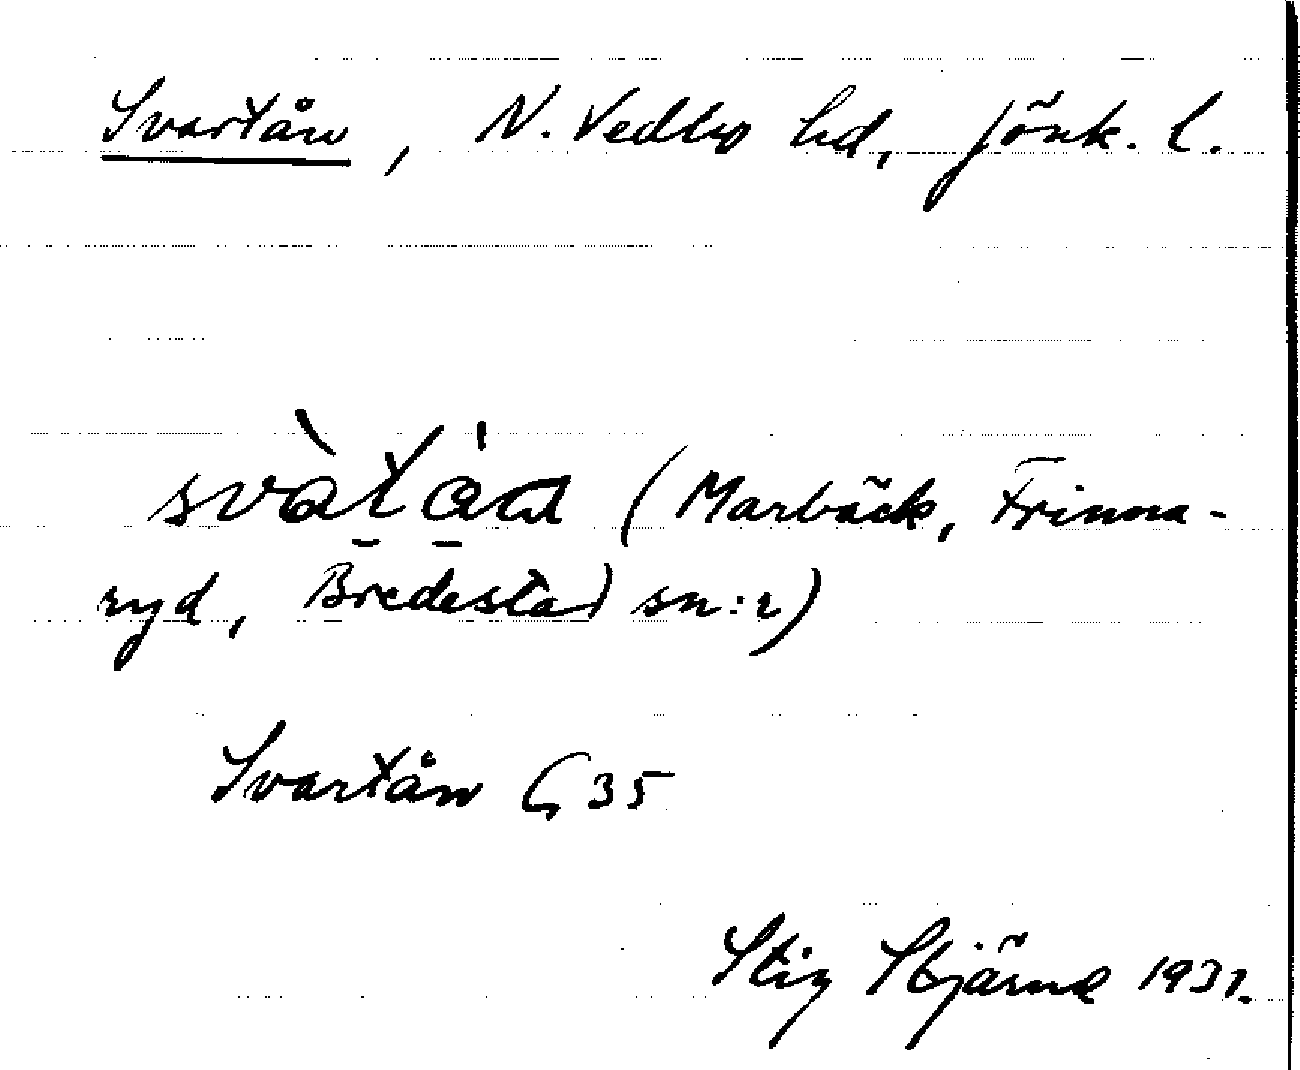 Svartån, N. Vedbo hd, Jönk. l.
svàtåa (Marbäck, Frinna-
ryd, Bredestad sn:r)
Svartån G 35
Stig Stjärne 1931.